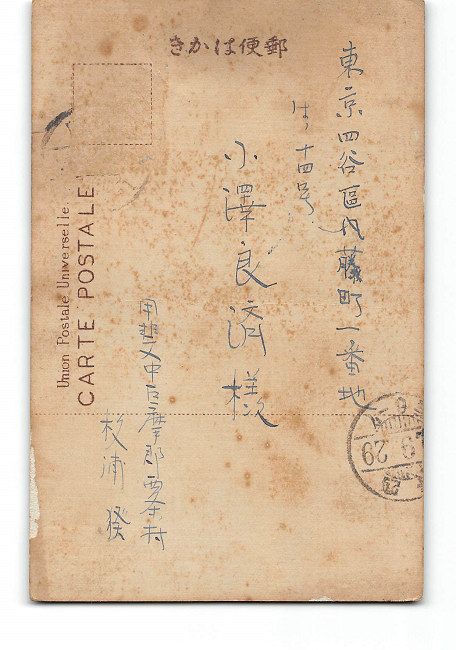 きかは便郵
東京四谷區内藤町一番地
は 十四号
小澤良濟様
甲斐 中巨摩郡西条村
杉浦
Union Postale Universelle
CARTE POSTALE
9 29